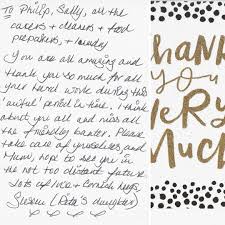 To Philip, Sally, all the
carers + cleaners + food
preparers, + laundry
You are all amazing and
thank you so much for all
your hard work during this
'awful' period in time. I think
about you all and miss all
the friendly banter. Please
take care of yourselves and
Mum, hope to see you in
the not too distant future
Lots of love + Cornish hugs,
Susan (Rita's daughter)
THANK
YOU
VERY
MUCH